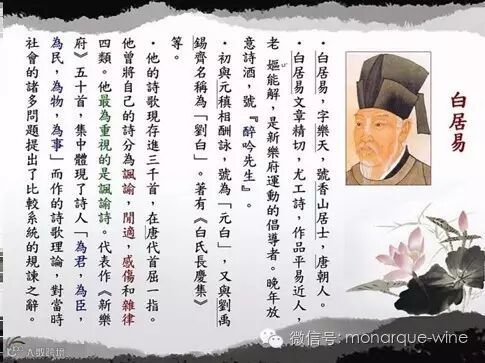 白居易
・白居易，字樂天，號香山居士，唐朝人。
・白居易文章精切，尤工詩，作品平易近人，
老嫗能解，是新樂府運動的倡導者。晚年放
意詩酒，號『醉吟先生』。
・初與元稹相酬詠，號為「元白」，又與劉禹
錫齊名稱為「劉白」。著有《白氏長慶集》
等。
・他的詩歌現存進三千首，在唐代首屈一指。
他曾將自己的詩分為諷諭，閒適，感傷和雜律
四類。他最為重視的是諷諭詩。代表作《新樂
府》五十首，集中體現了詩人「為君，為臣，
為民，為物，為事」而作的詩歌理論，對當時
社會的諸多問題提出了比較系統的規諫之辭。
微信号: monarque-wine